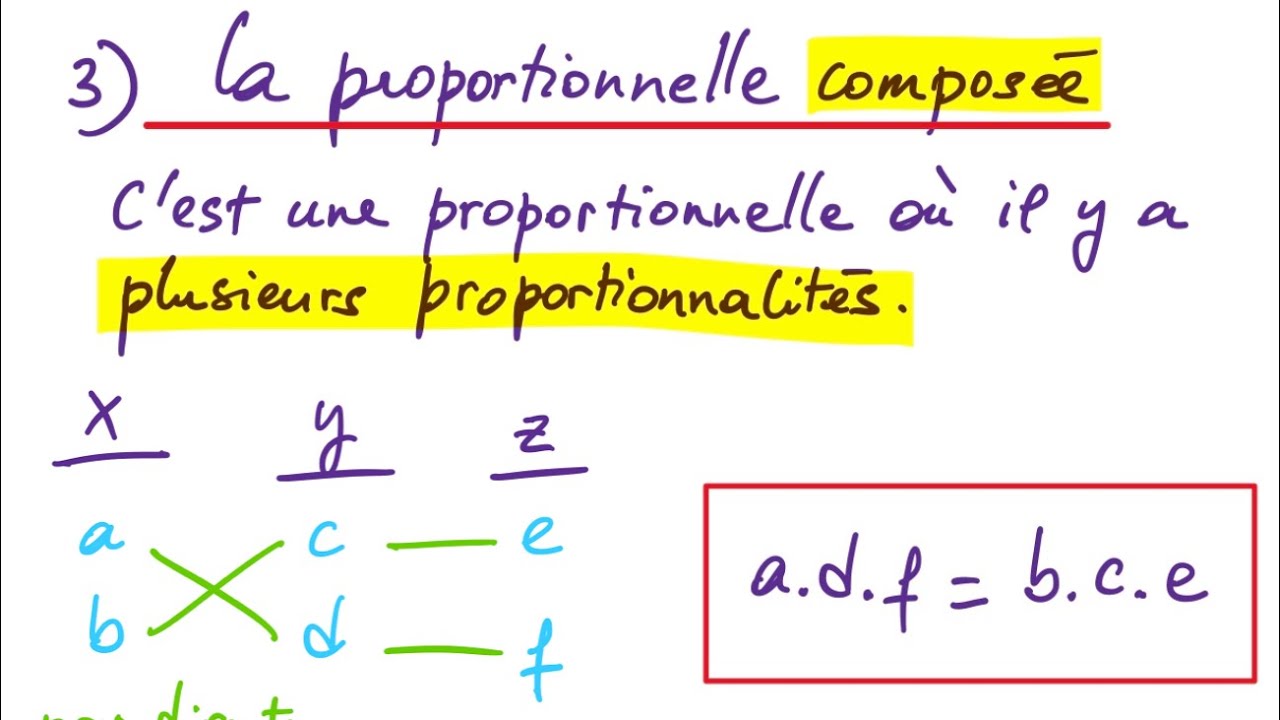 3) la proportionnelle composée
C'est une proportionnelle où il y a
plusieurs proportionnalités.
x y z
a c e
b d f
a.d.f = b.c.e